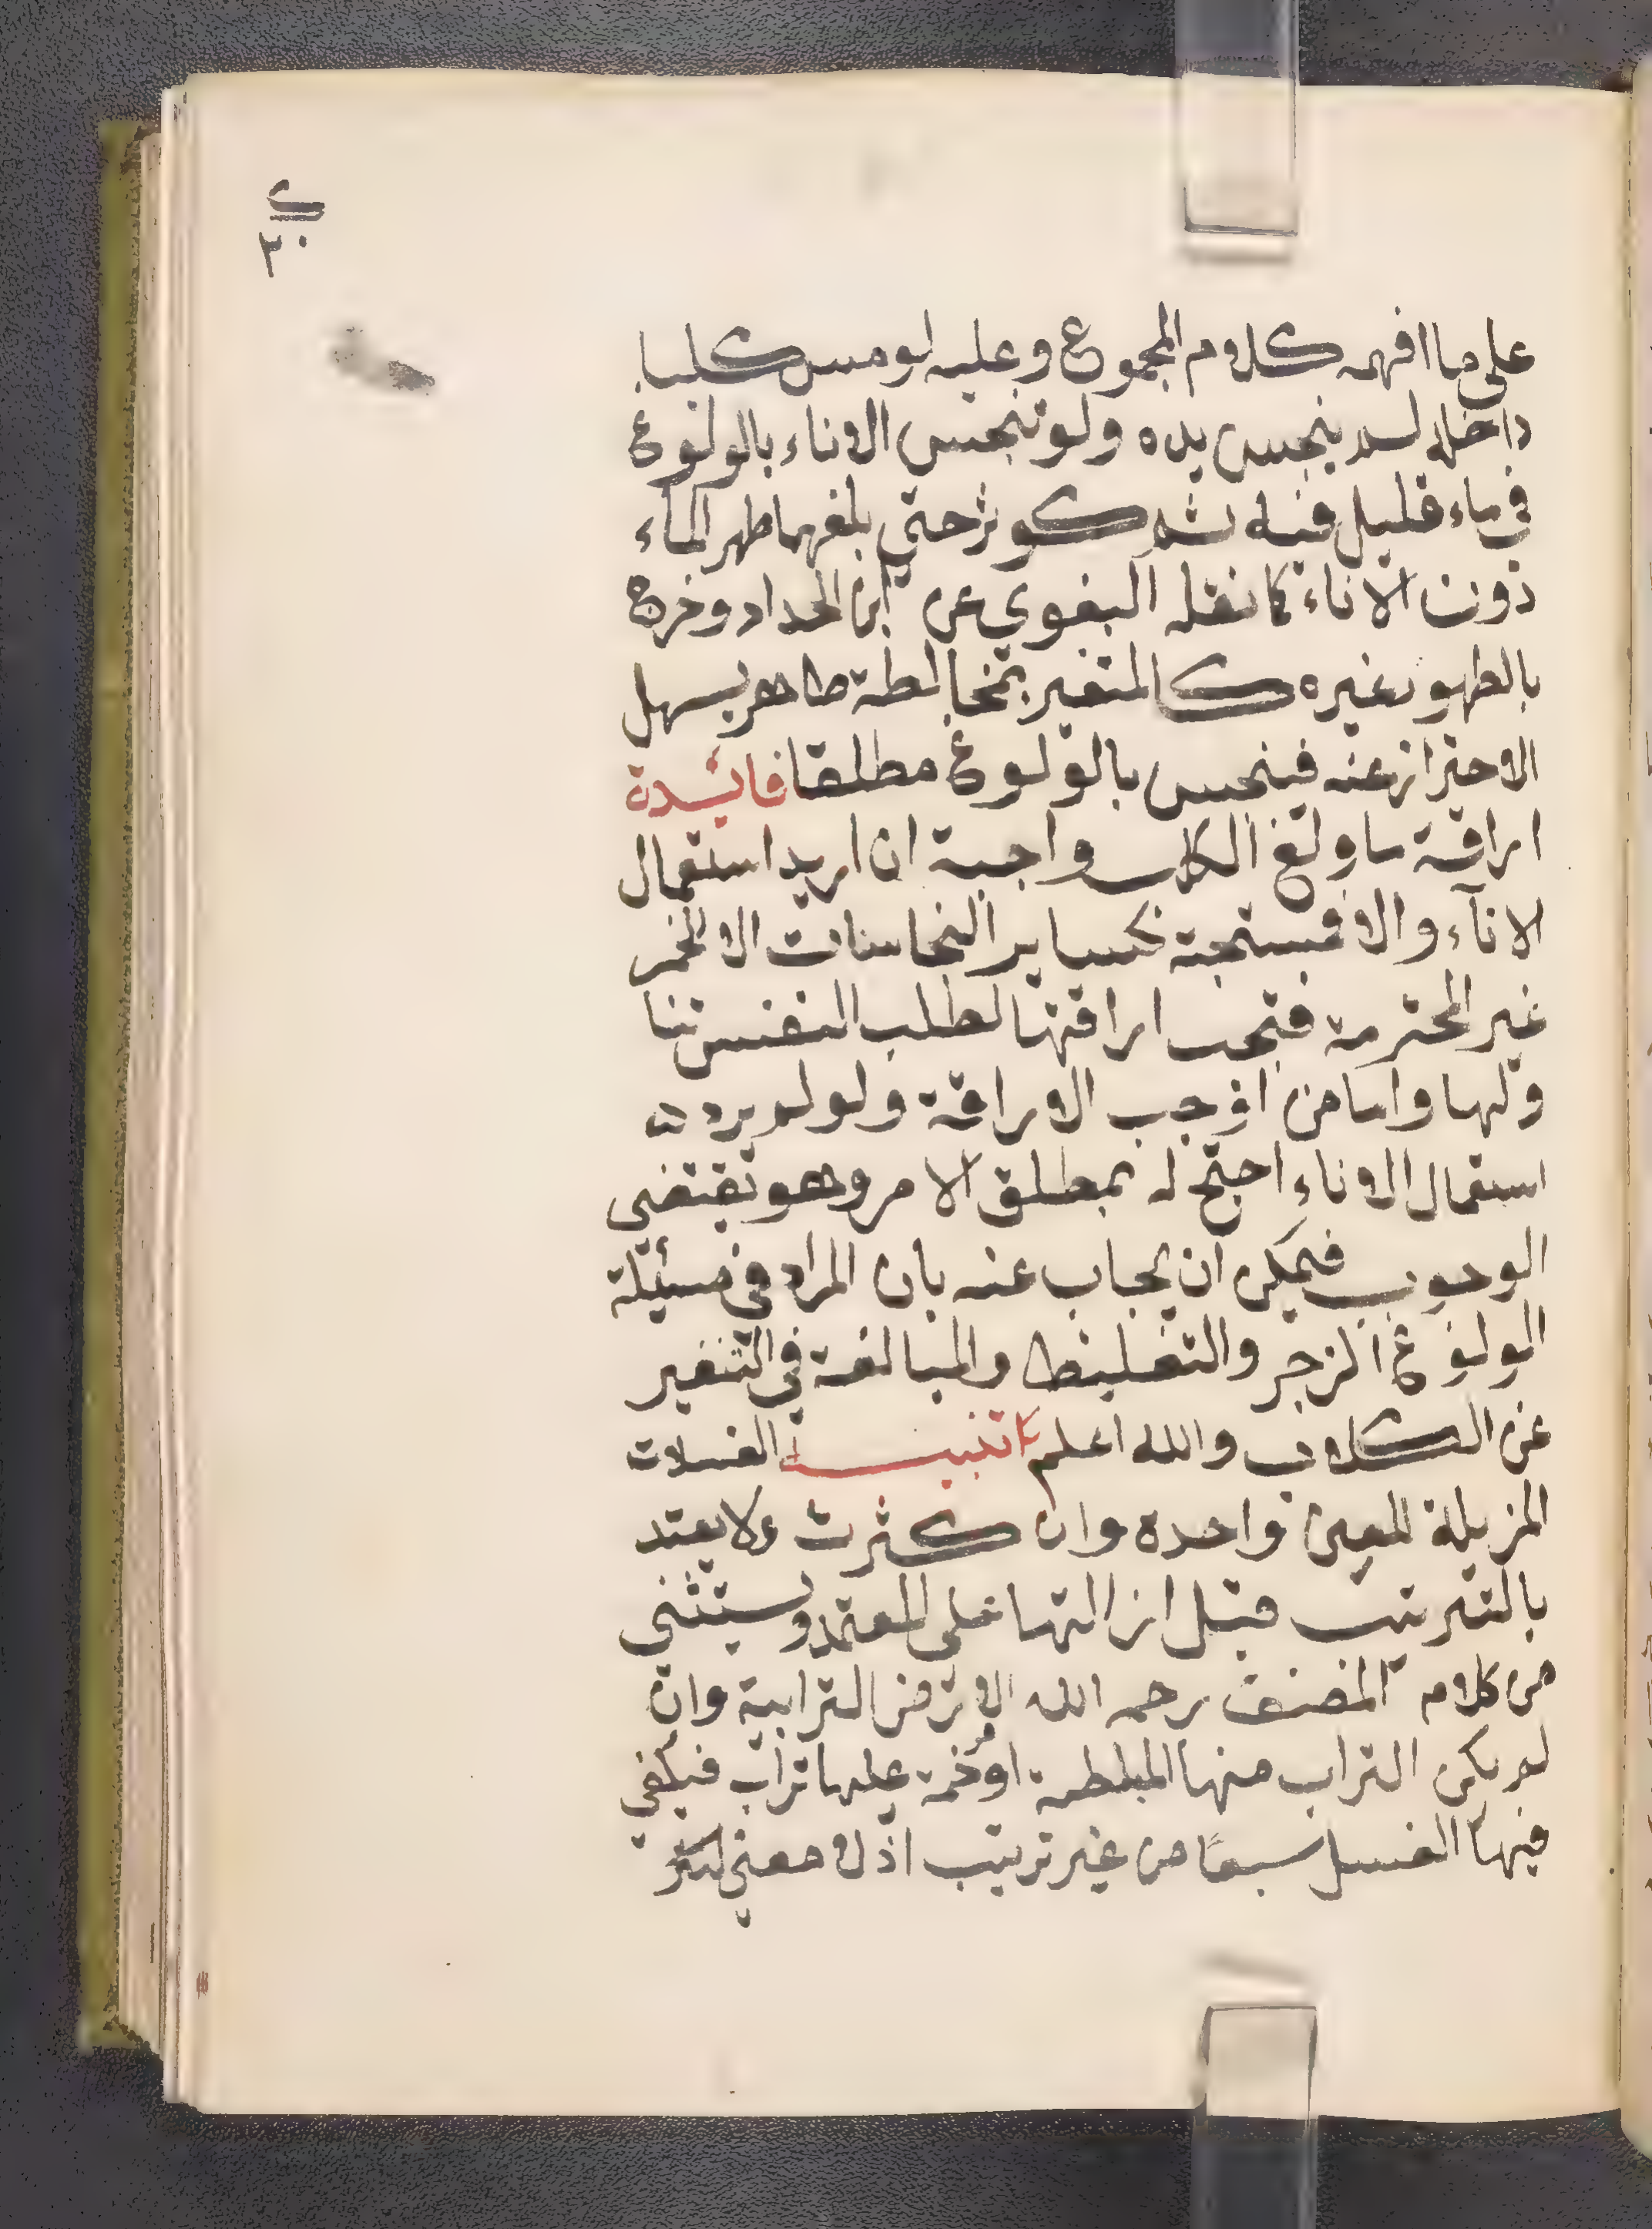 ٣٠
على ما افهمه كلام المجموع وعليه لو مس كلبا
داخله لم ينجس يده ولو تنجس الاناء بالولوغ
في ماء قليل فيه ثم كوثر حتى بلغهما طهر الماء
دون الاناء كما نقله البغوي عن ابن الحداد وخرج
بالطهور غيره كالمتغير بمخالطة طاهر يسهل
الاحتراز عنه فينجس بالولوغ مطلقا فائدة
اراقة ما ولغ الكلب واجبة ان اريد استعمال
الاناء والا فمستحبة كساير النجاسات الا الخمر
غير المحترمة فتجب اراقتها لطلب النفس
لها واما من اوجب الاراقة ولو لم يرد
استعمال الاناء احتج له بمطلق الامر وهو يقتضي
الوجوب فيمكن ان يجاب عنه بان المراد في مسئلة
الولوغ الزجر والتغليظ والمبالغة في التنفير
عن الكلاب والله اعلم تنبيه الغسلات
المزيلة للعين واحده وان كثرت ولا يعتد
بالتتريب قبل ازالتها على المعتمد ويستثنى
من كلام المصنف رحمه الله الارض الترابية وان
لم يكن التراب منها المبلطة او عليها تراب فيكفي
فيها الغسل سبعًا من غير تريتب اذ لا معنى لتتر